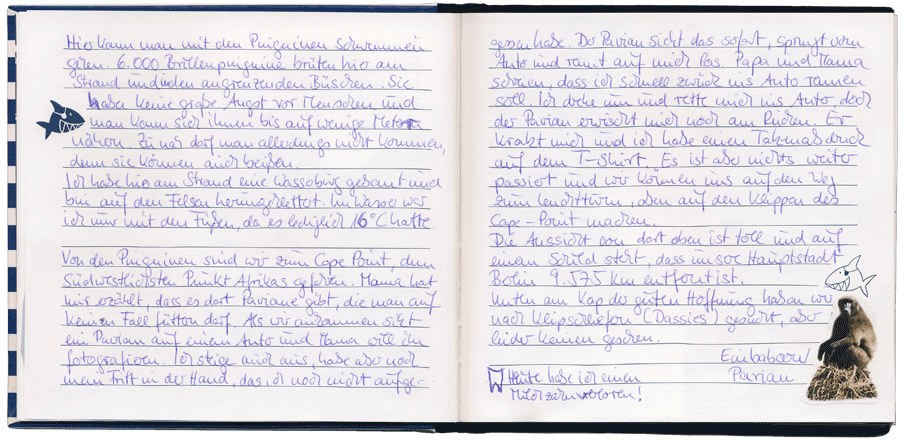 Hier kann man mit den Pinguinen schwimmen
gehen. 6.000 Brillenpinguine brüten hier am
Strand und in den angrenzenden Büschen. Sie
haben keine große Angst vor Menschen und
man kann sich ihnen bis auf wenige Meter
nähern. Zu nah darf man allerdings nicht kommen,
denn sie können auch beißen.
Ich habe hier am Strand eine Wasserburg gebaut und
bin auf den Felsen herumgeklettert. Im Wasser war
ich nur mit den Füßen, da es lediglich 16°C hatte.
Von den Pinguinen sind wir zum Cape Point, dem
südwestlichsten Punkt Afrikas gefahren. Mama hat
mir erzählt, dass es dort Paviane gibt, die man auf
keinen Fall füttern darf. Als wir ankommen sitzt
ein Pavian auf einem Auto und Mama will ihn
fotografieren. Ich steige auch aus, habe aber noch
mein Fritt in der Hand, das ich noch nicht aufge-
gessen habe. Der Pavian sieht das sofort, springt vom
Auto und rennt auf mich los. Papa und Mama
schreien, dass ich schnell zurück ins Auto rennen
soll. Ich drehe um und rette mich ins Auto, doch
der Pavian erwischt mich noch am Rücken. Er
kratzt mich und ich habe einen Tatzenabdruck
auf dem T-Shirt. Es ist aber nichts weiter
passiert und wir können uns auf den Weg
zum Leuchtturm, oben auf den Klippen des
Cape-Point machen.
Die Aussicht von dort oben ist toll und auf
einem Schild steht, dass unsere Hauptstadt
Berlin 9.575 km entfernt ist.
Unten am Kap der guten Hoffnung haben wir
nach Klipschliefern (Dassies) gesucht, aber
leider keinen gesehen.
Ein baboon/
Pavian
Heute habe ich einen
Milchzahn verloren!